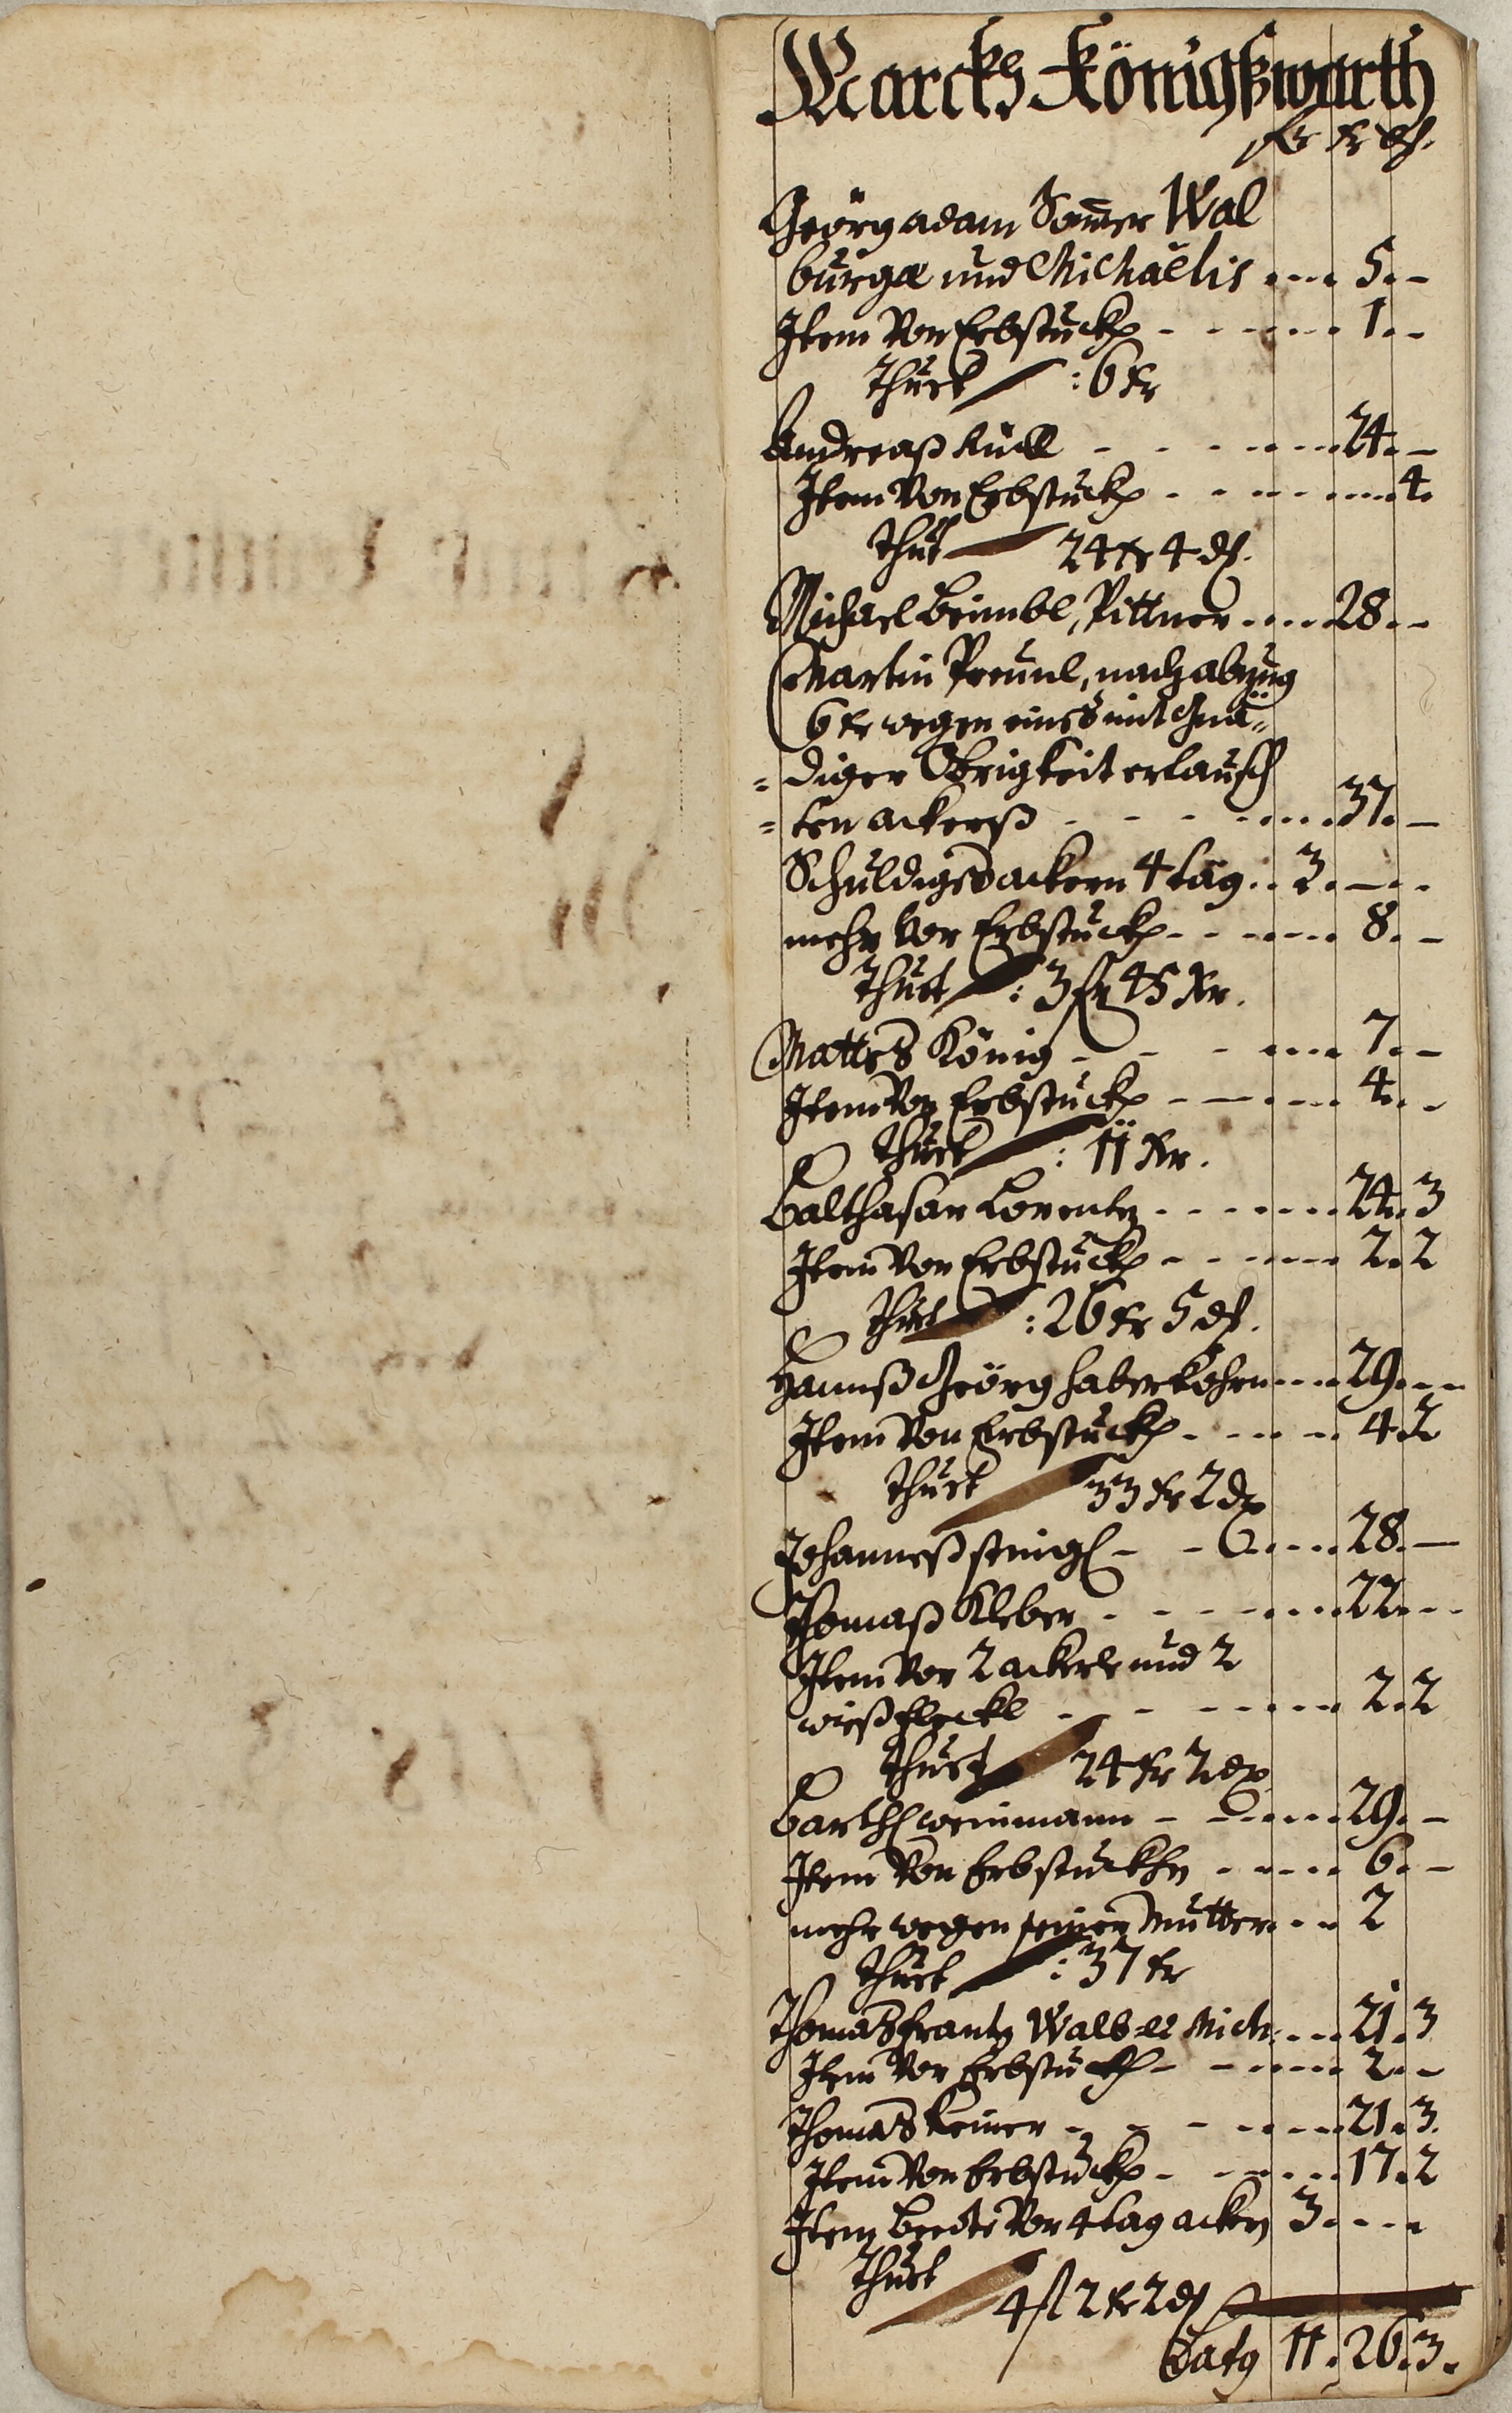 Marckh Königßwarth
fl kr ₰.
Geörg adam Som̄er Wal
burgæ und Michaëlis .... 5. –
Item Von Erbstuckh - - - - - - 1. –
thuet : 6 kr
Andreaß Küll - - - - - - 24. –
Item Von Erbstuckh - - - - - - 4.
thut 24 kr 4 ₰.
Michael Beimbl, Pittner ..... 28. –
Martin Preünl, nach abzug
6 kr wegen eines mit Gnä=
= diger Obrigkeit ertausch
= ten ackerß - - - - - - 37. –
Schuldigs ackern 4 tag .. 3. – . .
mehr Vor Erbstuckh - - - - - - 8. –
thuet : 3 fl 45 kr.
Mattes König - - - .... 7. –
Item Von Erbstuckh - - - - - 4. –
thuet : 11 kr.
Balthasar Lorentz - - - - - - 24. 3
Item Von Erbstuckh - - - - - - 2. 2
thuet : 26 kr 5 ₰.
Hannß Geörg Haberkohrn .... 29. - -
Item Von Erbstuckh - - - - - 4. 2
thuet 33 kr 2 ₰
Johanneß stingl - - ..... 28. –
Thomaß Kleber - - - - - - 22. - -
Item Vor 2 ackerle und 2
wießfleckl - - - - - - 2. 2
thuet 24 kr 2 ₰
Barthl weinmann - - ..... 29. –
Item Von Erbstuckhen - - - - - 6. –
mehr wegen seiner Mutter. - - 2
thuet : 37 kr
Thomas Frantz Walb- et Mich: - - - 21. 3
Item Vor Erbstuckh - - - - - - 2. –
Thomas Keiner - - - - - - 21. 3.
Item Von Erbstuckh - - - - - - 17. 2
Item beede Vor 4 tag ackern 3. - - -
thuet 4 fl 2 kr 2 ₰
Latg 11. 26. 3.